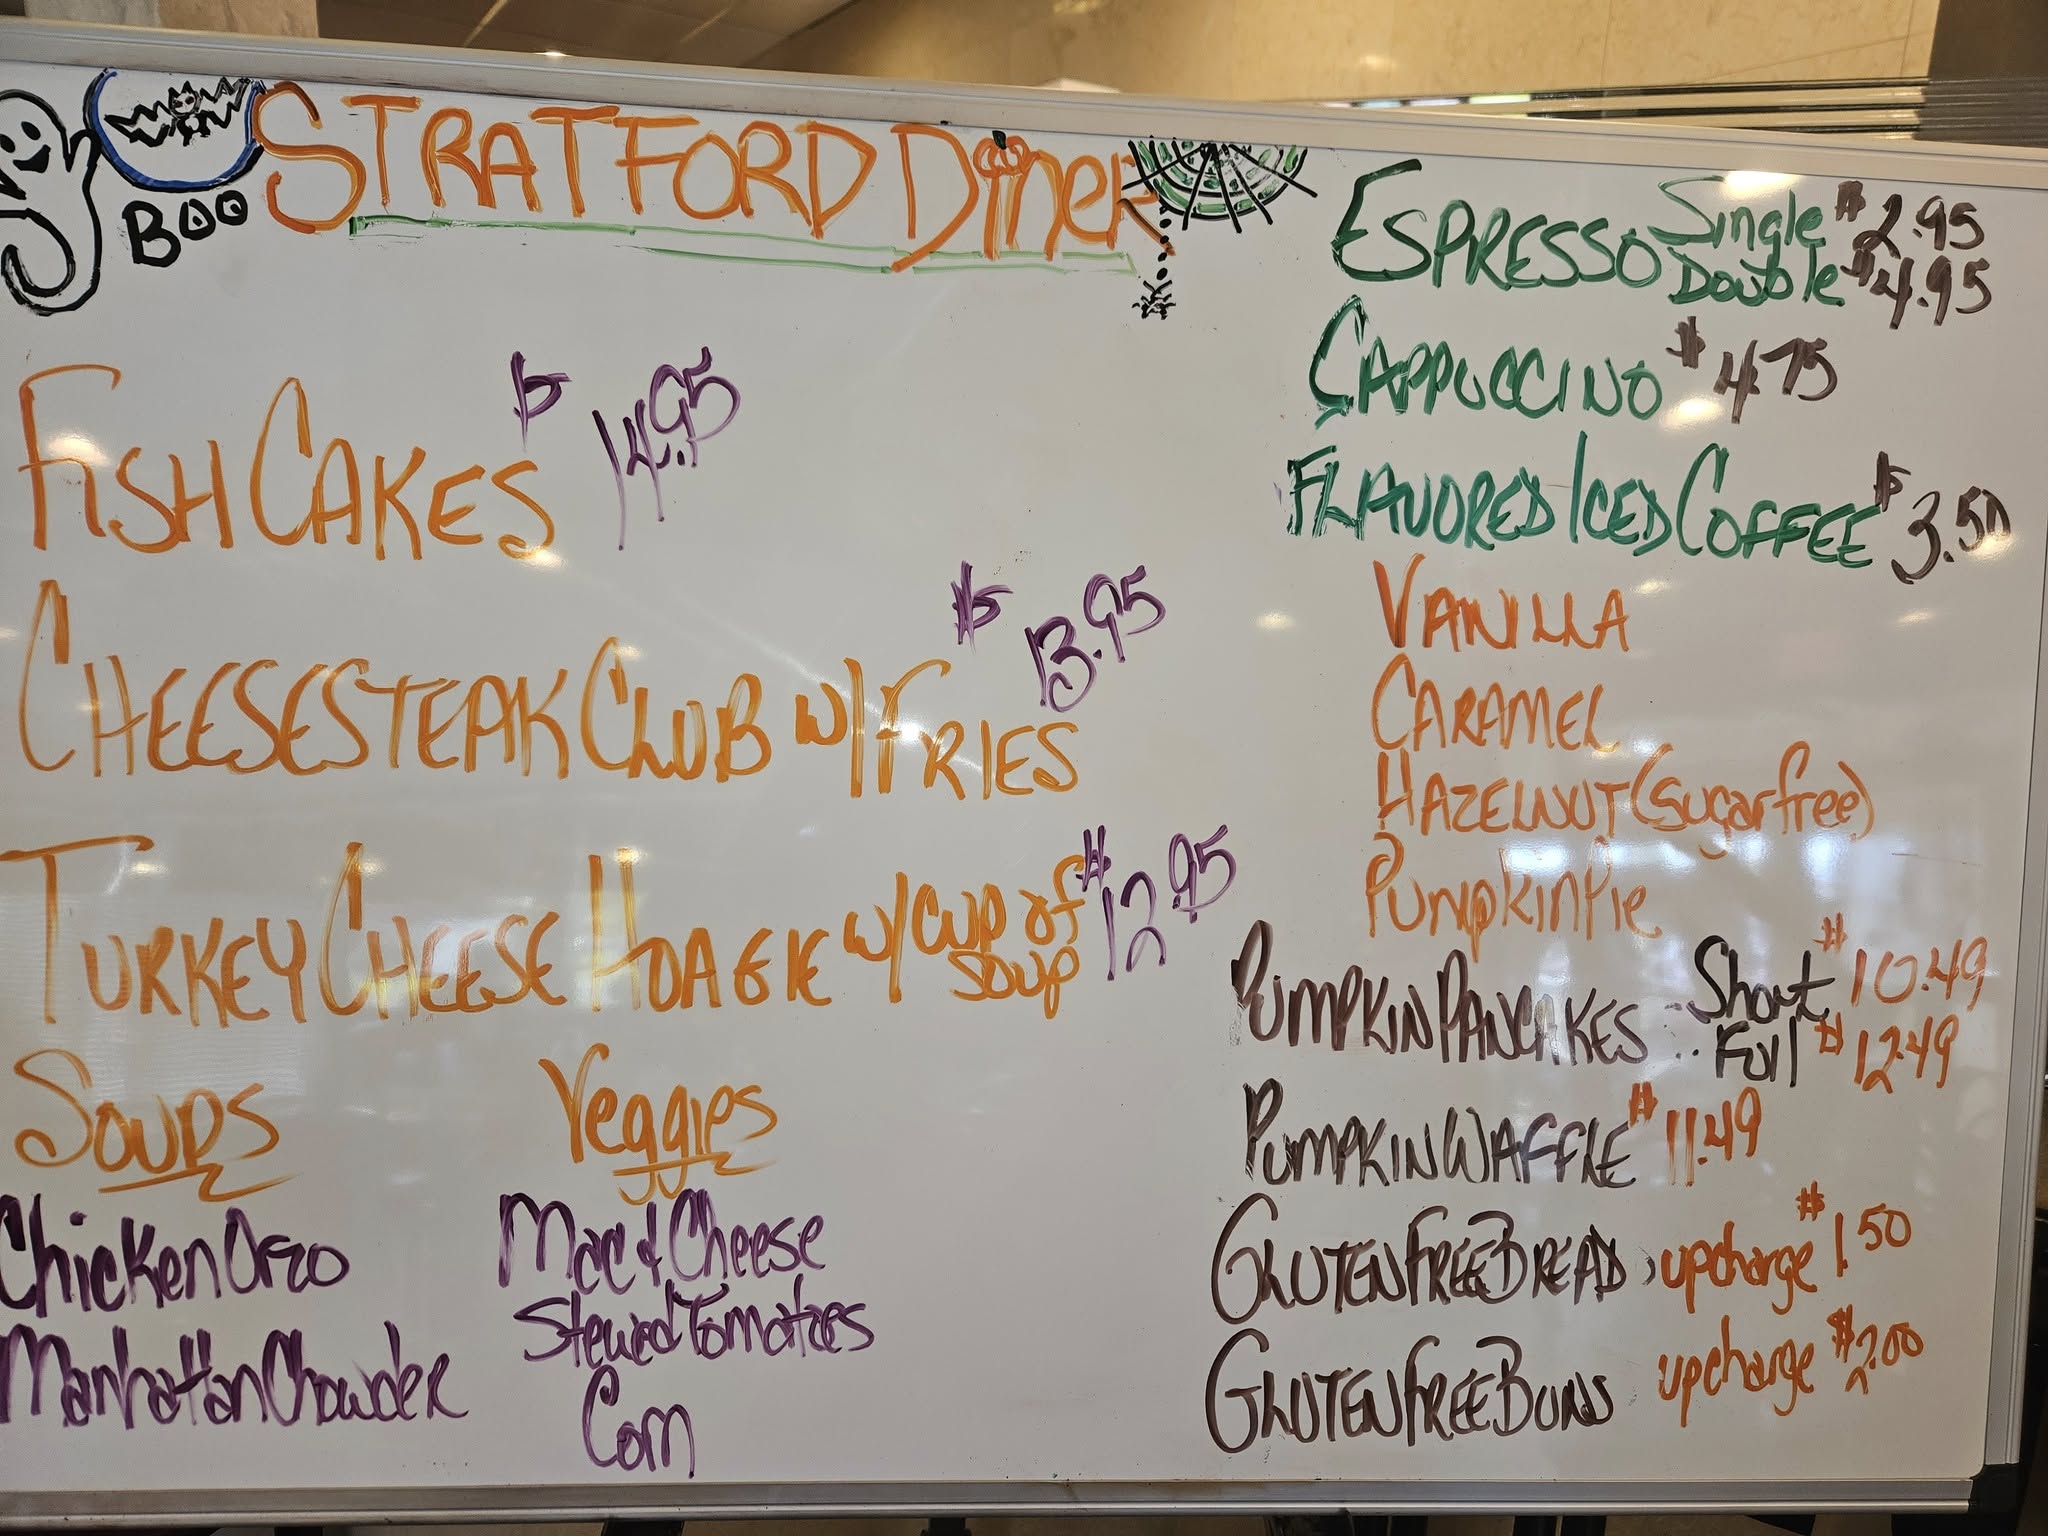 BOO
STRATFORD Diner
FISH CAKES $14.95
CHEESESTEAK CLUB W/FRIES $13.95
TURKEY CHEESE HOAGIE W/CUP of SOUP $12.95
SOUPS
Chicken Orzo
Manhattan Chowder
Veggies
Mac & Cheese
Stewed Tomatoes
Corn
ESPRESSO Single $2.95
Double $4.95
CAPPUCCINO $4.75
FLAVORED ICED COFFEE $3.50
VANILLA
CARAMEL
HAZELNUT (sugar free)
Pumpkin Pie
PUMPKIN PANCAKES .. Short $10.49
Full $12.49
PUMPKIN WAFFLE $11.49
GLUTEN FREE BREAD upcharge $1.50
GLUTEN FREE BUNS upcharge $2.00